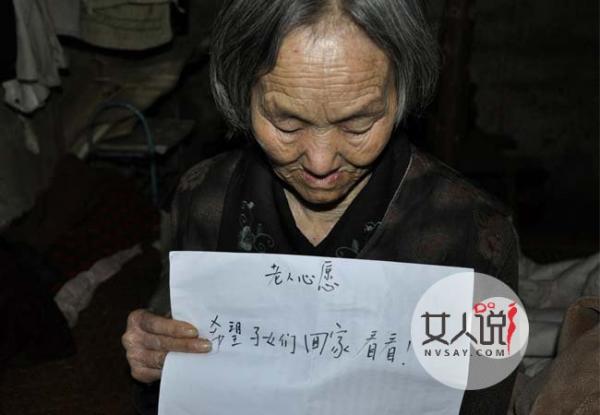 老人心愿
希望子女们回家看看！
女人说
NVSAY.COM